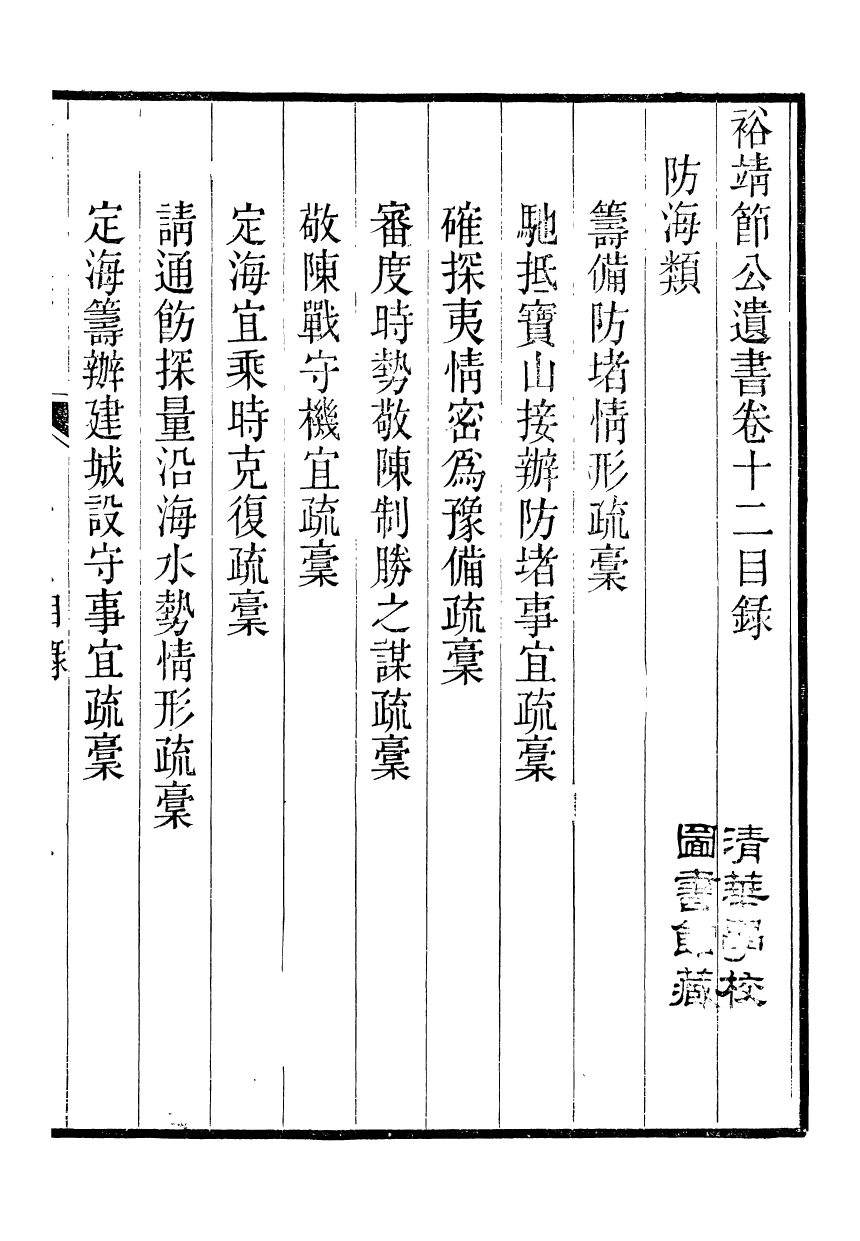 裕靖節公遺書卷十二目錄
防海類
籌備防堵情形疏稾
馳抵寶山接辦防堵事宜疏稾
確探夷情密爲豫備疏稾
審度時勢敬陳制勝之謀疏稾
敬陳戰守機宜疏稾
定海宜乘時克復疏稾
請通飭探量沿海水勢情形疏稾
定海籌辦建城設守事宜疏稾
目錄
清華學校
圖書館藏